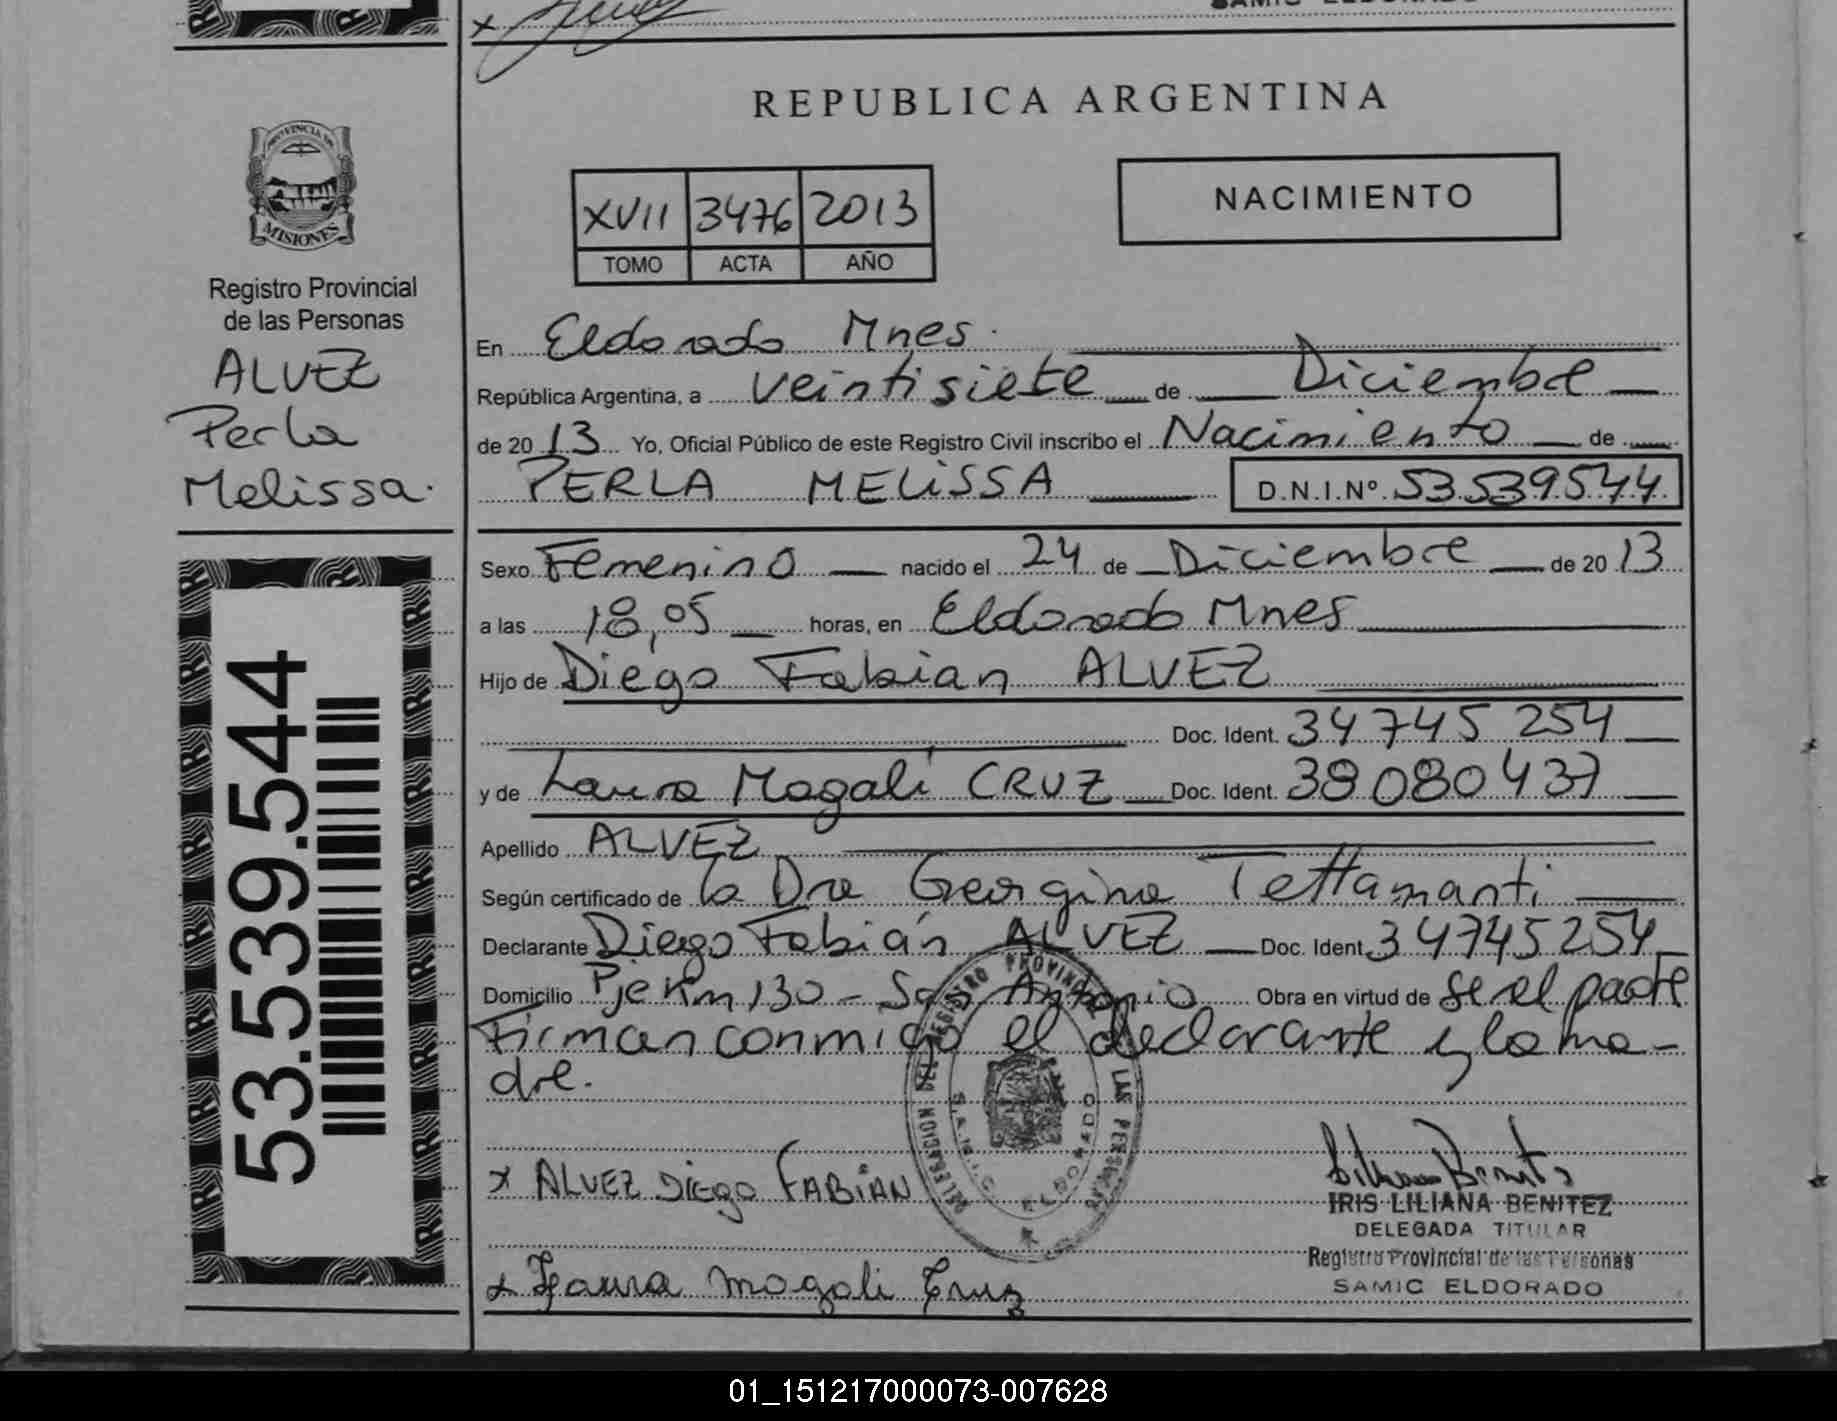 SAMIC ELDORADO
REPUBLICA ARGENTINA
PROVINCIA DE
MISIONES
Registro Provincial
de las Personas
ALVEZ
Perla
Melissa.
53.539.544
XVII 3476 2013
TOMO ACTA AÑO
NACIMIENTO
En Eldorado Mnes.
República Argentina, a veintisiete de Diciembre
de 2013 Yo, Oficial Público de este Registro Civil inscribo el Nacimiento de
PERLA MELISSA D.N.I.Nº. 53.539.544.
Sexo Femenino nacido el 24 de Diciembre de 2013
a las 18,05 horas, en Eldorado Mnes
Hijo de Diego Fabian ALVEZ
Doc. Ident. 34745254
y de Laura Magalí CRUZ Doc. Ident. 38080437
Apellido ALVEZ
Según certificado de la Dra Georgina Tettamanti
Declarante Diego Fabián ALVEZ Doc. Ident. 34745254
Domicilio Pje Km 130 - San Antonio Obra en virtud de se el padre
Firman conmigo el declarante y la ma-
dre.
DELEGACION DEL REGISTRO PROVINCIAL DE LAS PERSONAS
S.A.M.I.C. ELDORADO
x ALVEZ Diego FABIÁN
IRIS LILIANA BENITEZ
DELEGADA TITULAR
Registro Provincial de las Personas
SAMIC ELDORADO
x Laura Magali Cruz
01_151217000073-007628